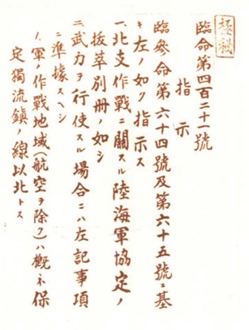 極秘
臨命第四百二十一號
指示
臨參命第六十四號及第六十五號ニ基
キ左ノ如ク指示ス
一、北支作戰ニ關スル陸海軍協定ノ
拔萃別冊ノ如シ
二、武力ヲ行使スル場合ニハ左記事項
ニ準據スヘシ
1.軍ノ作戰地域(航空ヲ除ク)ハ概ネ保
定獨流鎮ノ線以北トス